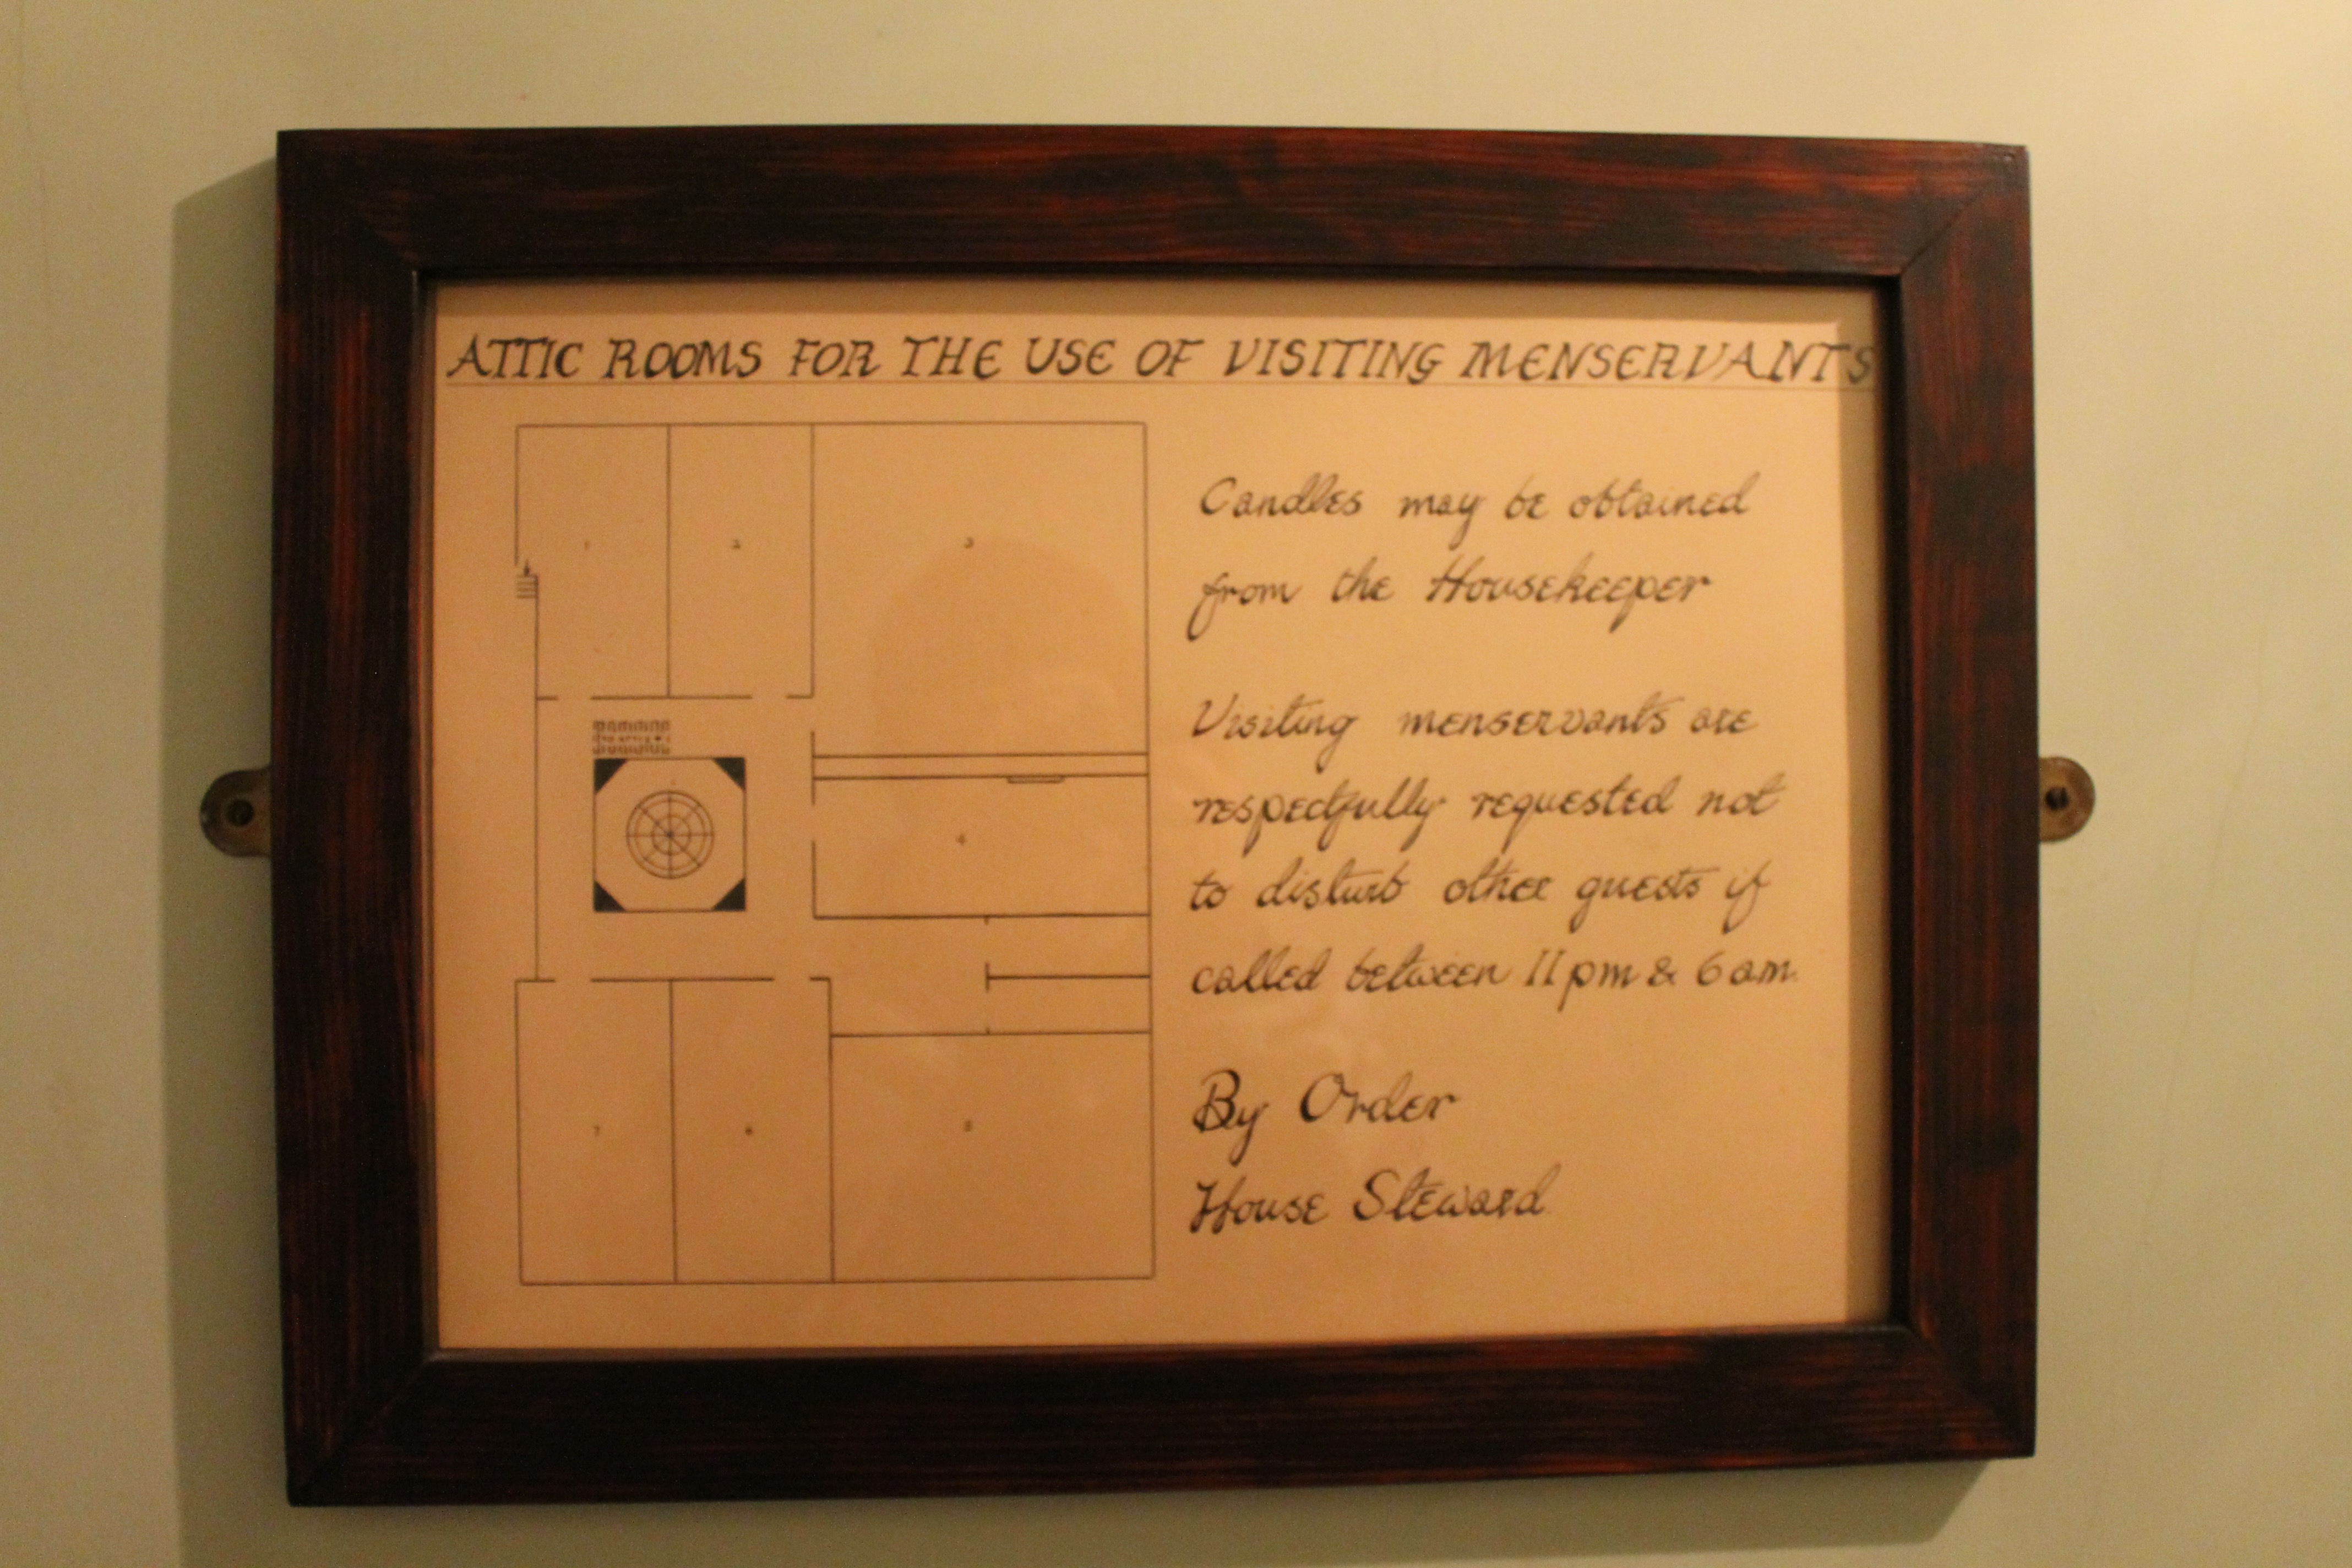 ATTIC ROOMS FOR THE USE OF VISITING MENSERVANTS
1
2
3
4
7
6
5
Candles may be obtained
from the Housekeeper
Visiting menservants are
respectfully requested not
to disturb other guests if
called between 11pm & 6am.
By Order
House Steward